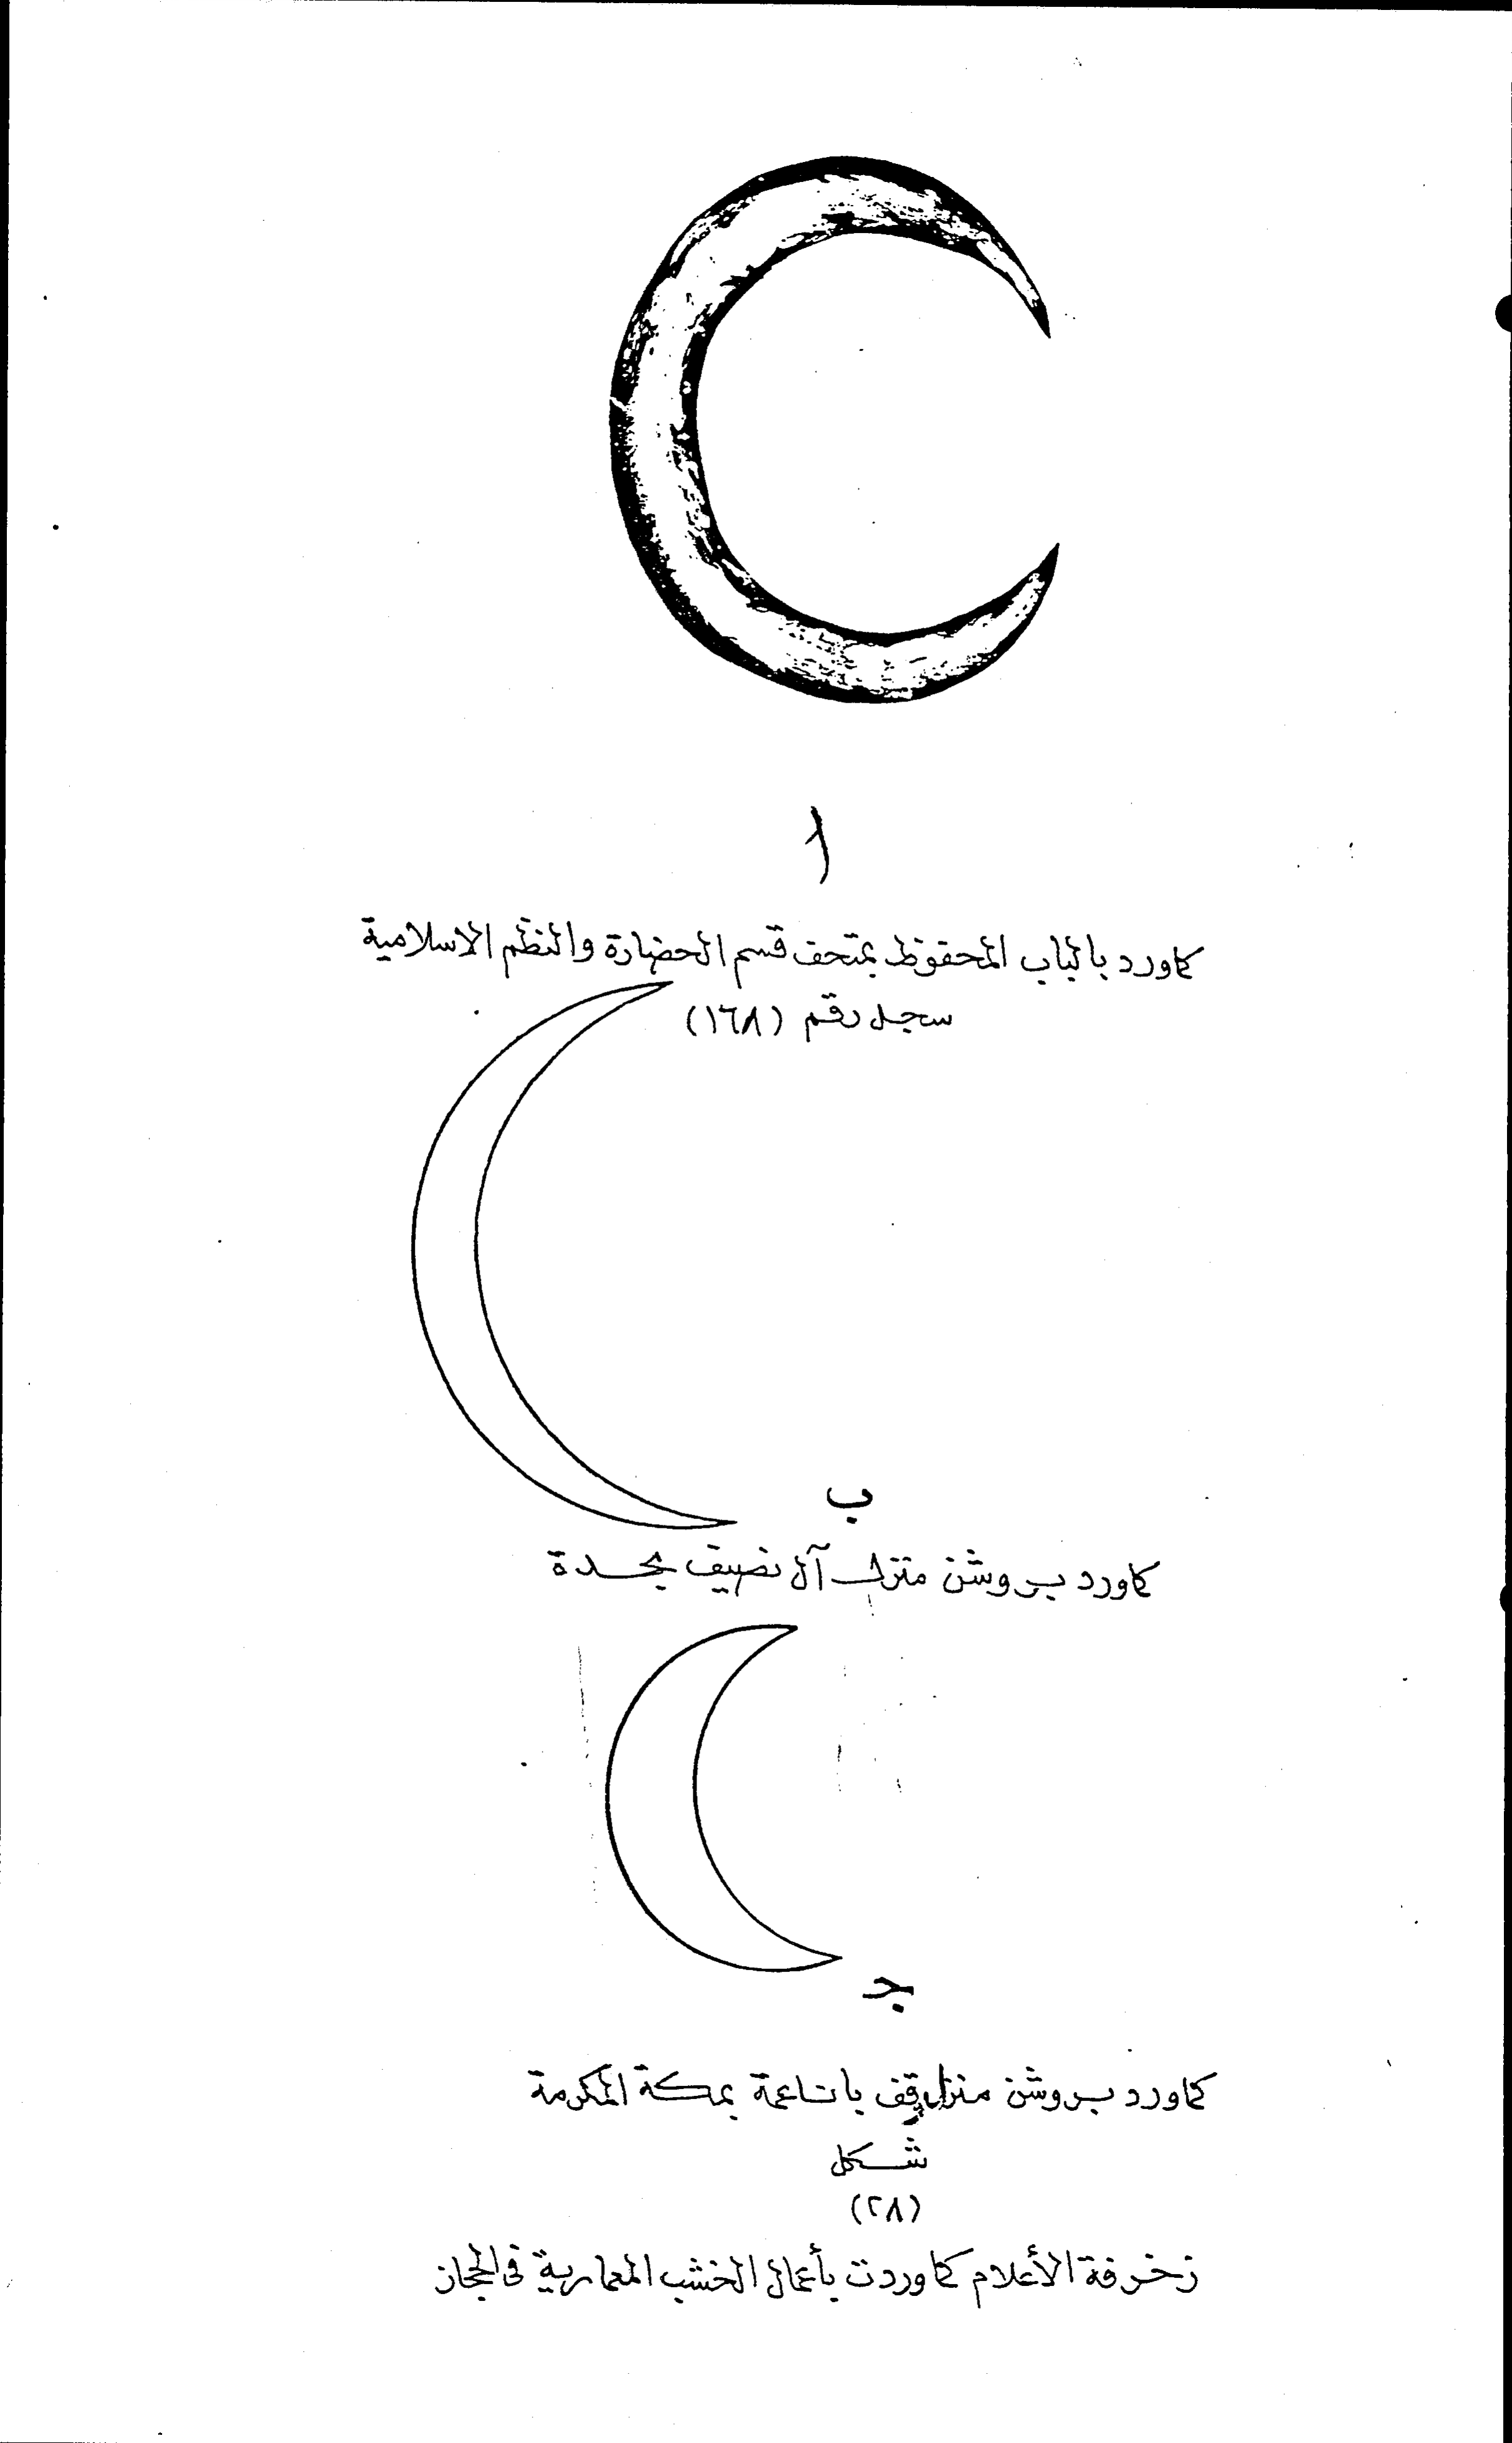 ا
كما ورد بالباب المحفوظ بمتحف قسم الحضارة والنظم الاسلامية
سجل رقم (١٦٨)
ب
كما ورد بروشن منزل آل نصيف بجدة
جـ
كما ورد بروشن منزل وقف باناعمة بمكة المكرمة
شكل
(٢٨)
زخرفة الأعلام كما وردت بأعمال الخشب المعمارية فى الحجاز